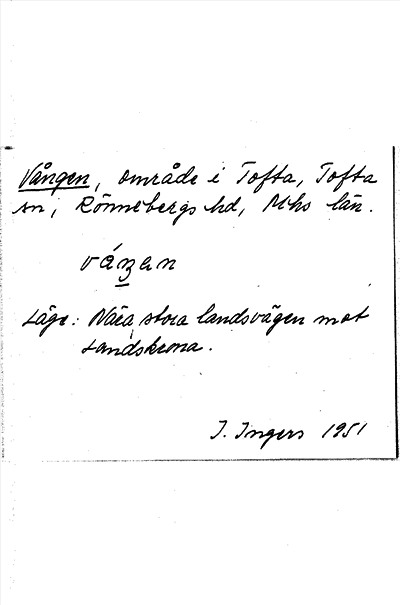 Vången, område i Tofta, Tofta
sn, Rönnebergs hd, Mhs län.
våʒan
Läge: Nära stora landsvägen mot
Landskrona.
I. Ingers 1951